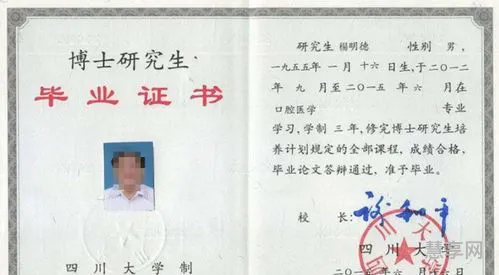 博士研究生
毕业证书
四川大学制
研究生 楊明德 性别 男,
一九五五年一月十六日生,于二〇一二
年九月至二〇一五年六月在
口腔医学 专业
学习,学制三年,修完博士研究生培
养计划规定的全部课程,成绩合格,
毕业论文答辩通过,准予毕业。
校 长: 谢和平
四川大学
慧享网